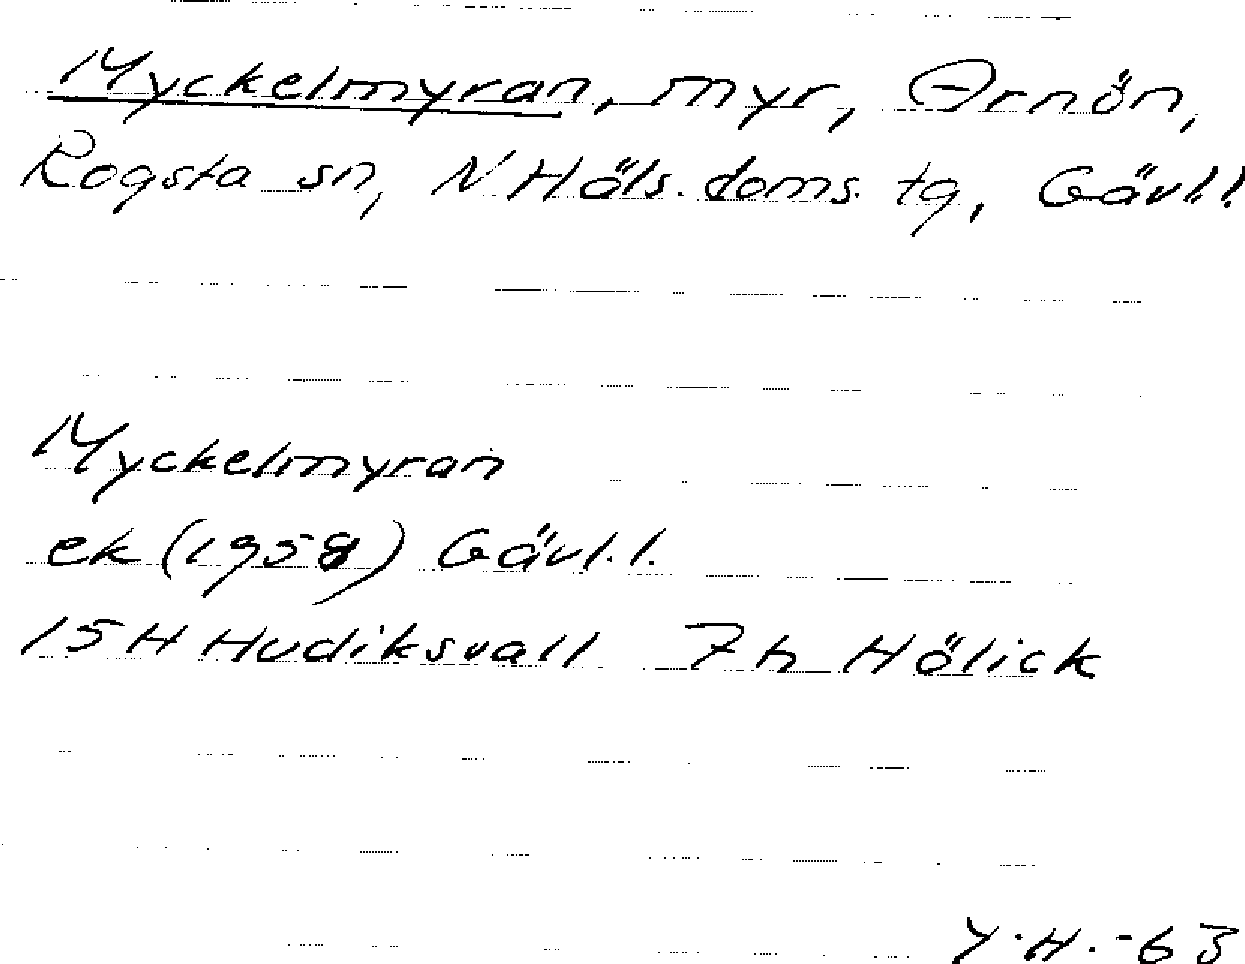 Myckelmyran, myr, Arnön,
Rogsta sn, N Häls. doms. tg, Gävl.l.
Myckelmyran
ek (1958) Gävl.l.
15H Hudiksvall 7h Hölick
Y.H.-63